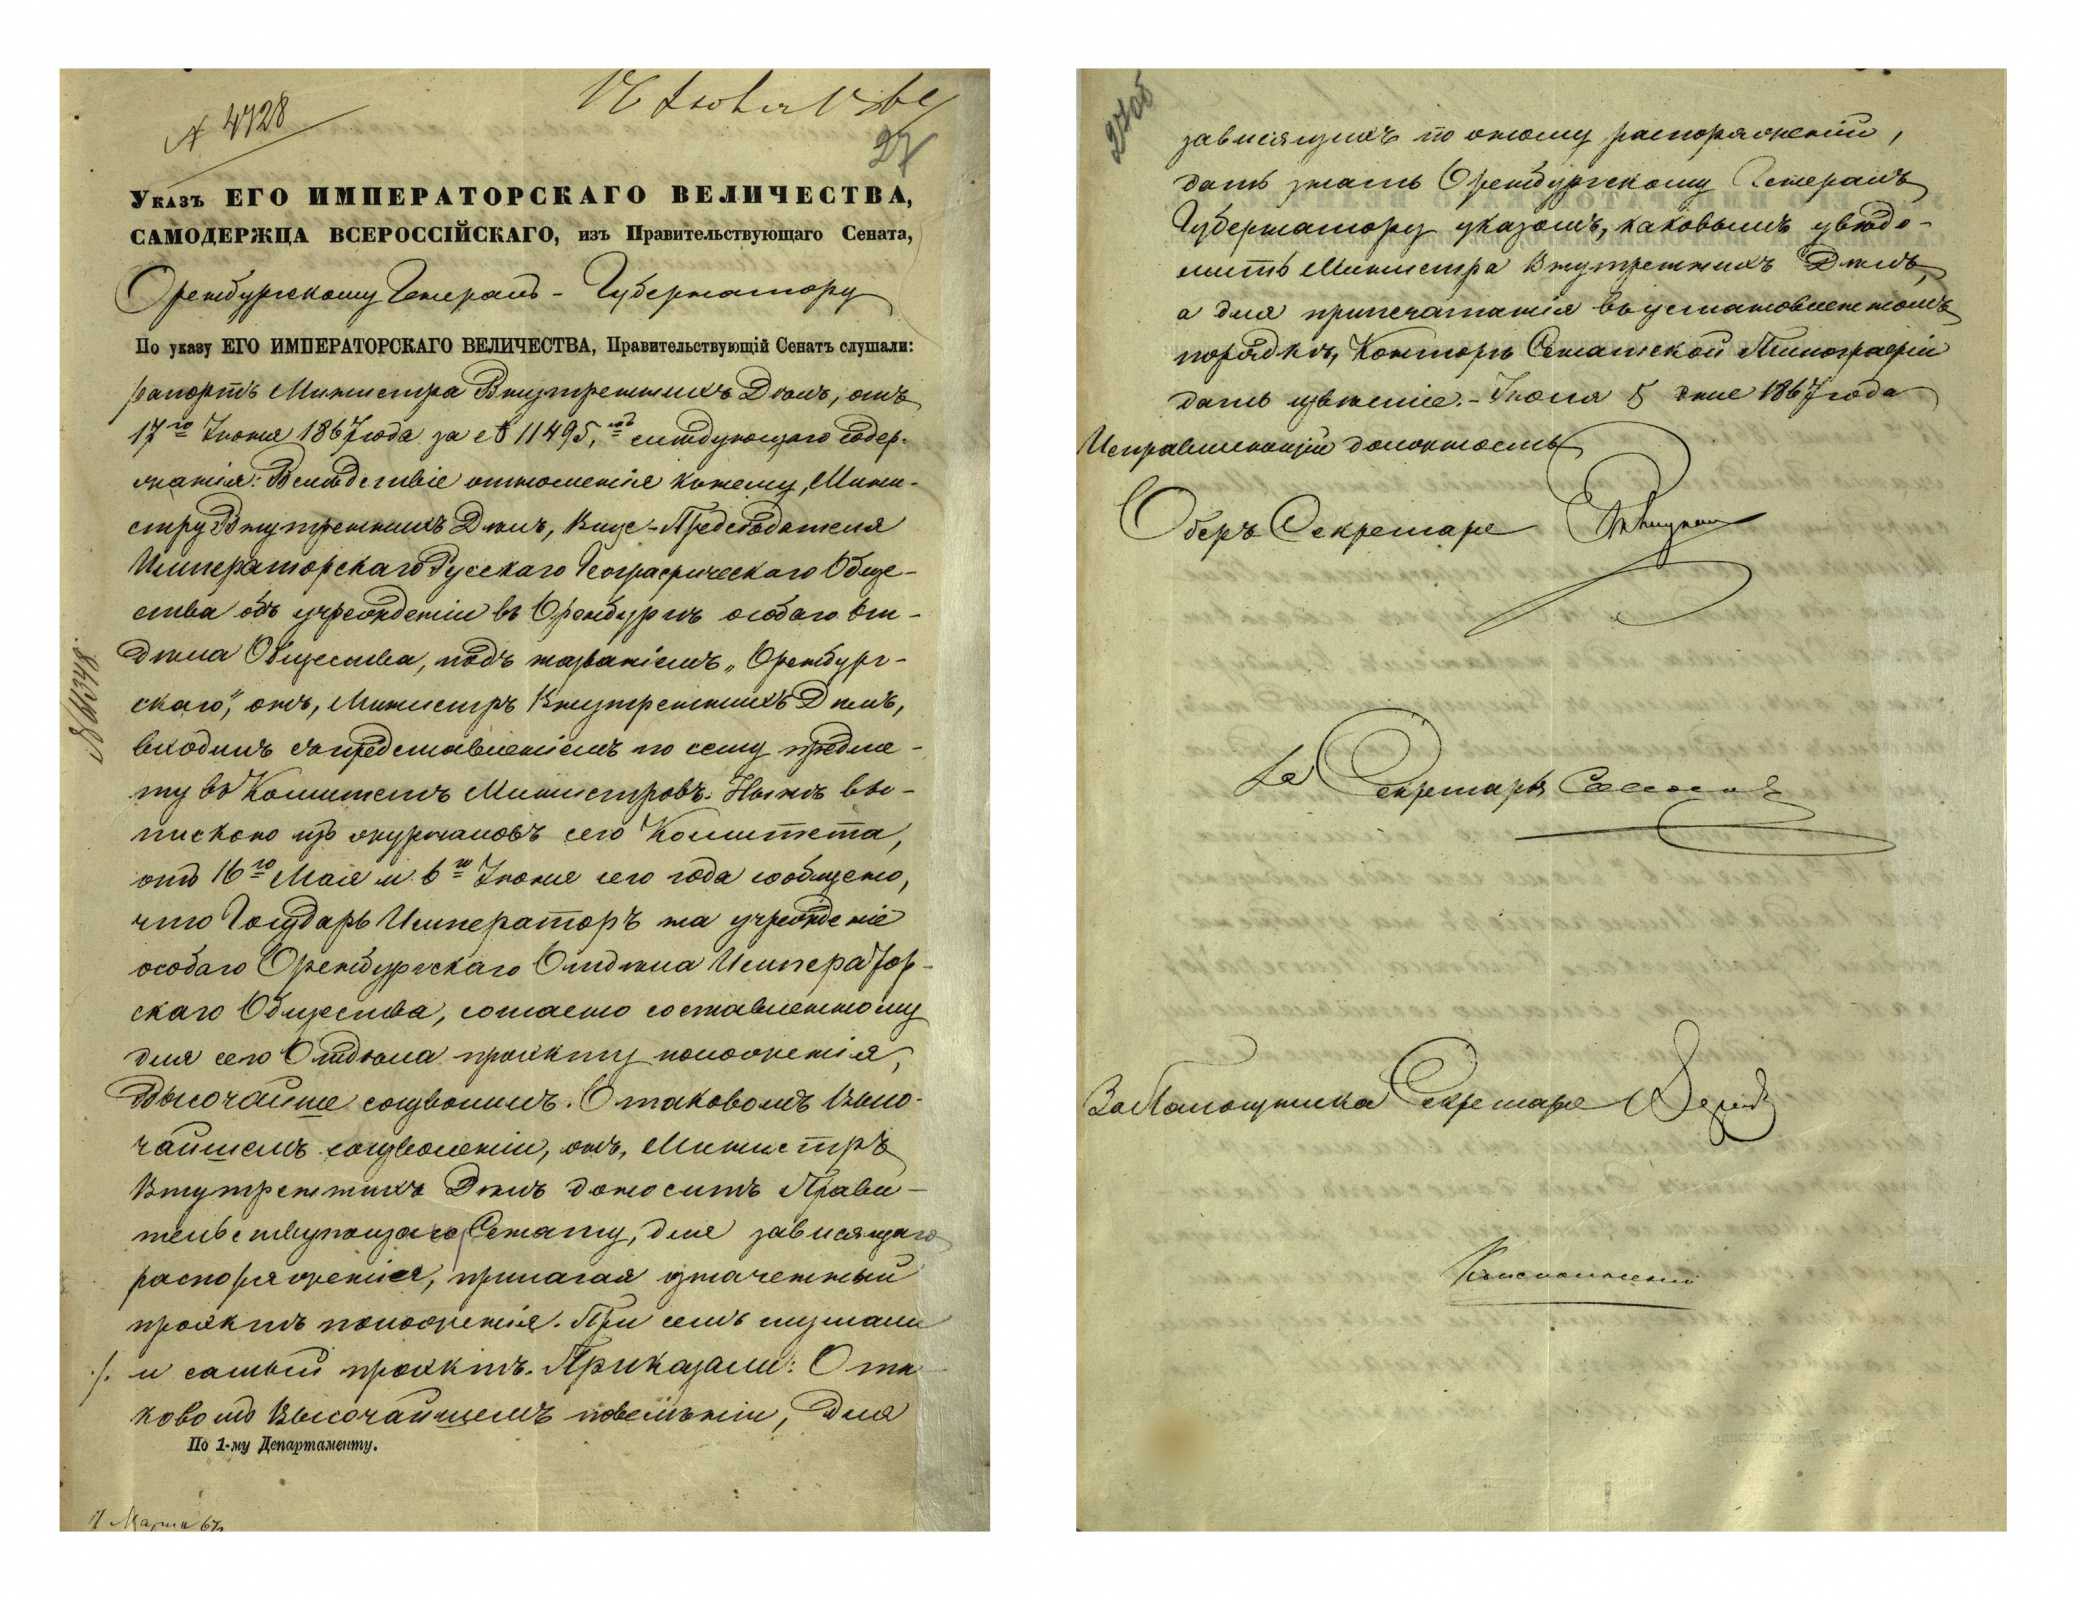 № 4728
27
Указъ ЕГО ИМПЕРАТОРСКАГО ВЕЛИЧЕСТВА,
САМОДЕРЖЦА ВСЕРОССІЙСКАГО, изъ Правительствующаго Сената,
Оренбургскому Генералъ-Губернатору
По указу ЕГО ИМПЕРАТОРСКАГО ВЕЛИЧЕСТВА, Правительствующій Сенатъ слушали:
рапортъ Министра Внутреннихъ Дѣлъ, отъ
17го Іюня 1867 года за № 11495, слѣдующаго содер-
жанія: Вслѣдствіе отношенія къ нему, Мини-
стру Внутреннихъ Дѣлъ, Вице-Предсѣдателя
Императорскаго Русскаго Географическаго Обще-
ства объ учрежденіи въ Оренбургѣ особаго От-
дѣла Общества, подъ названіемъ „Оренбург-
скаго", онъ, Министръ Внутреннихъ Дѣлъ,
входилъ съ представленіемъ по сему предме-
ту въ Комитетъ Министровъ. Нынѣ вы-
пискою изъ журналовъ сего Комитета,
отъ 16го Мая и 6го Іюня сего года сообщено,
что Государь Императоръ на учрежденіе
особаго Оренбургскаго Отдѣла Император-
скаго Общества, согласно составленному
для сего Отдѣла проэкту положенія,
Высочайше соизволилъ. О таковомъ Высо-
чайшемъ соизволеніи, онъ, Министръ
Внутреннихъ Дѣлъ доноситъ Прави-
тельствующаго Сенату, для зависящаго
распоряженія, прилагая означенный
проэктъ положенія. При семъ слушали
и самый проэктъ. Приказали: О та-
ковомъ Высочайшемъ повелѣніи, для
По 1-му Департаменту.
17 Марта 67г.
27об
зависящихъ по оному распоряженій,
дать знать Оренбургскому Генералъ
Губернатору указомъ, каковымъ увѣдо-
мить Министра Внутреннихъ Дѣлъ,
а для припечатанія въ установленномъ
порядкѣ, Конторѣ Сенатской Типографіи
дать извѣстіе. – Іюля 5 дня 1867 года
Исправляющій должность
Оберъ Секретаря
За Секретаря
За Помощника Секретаря